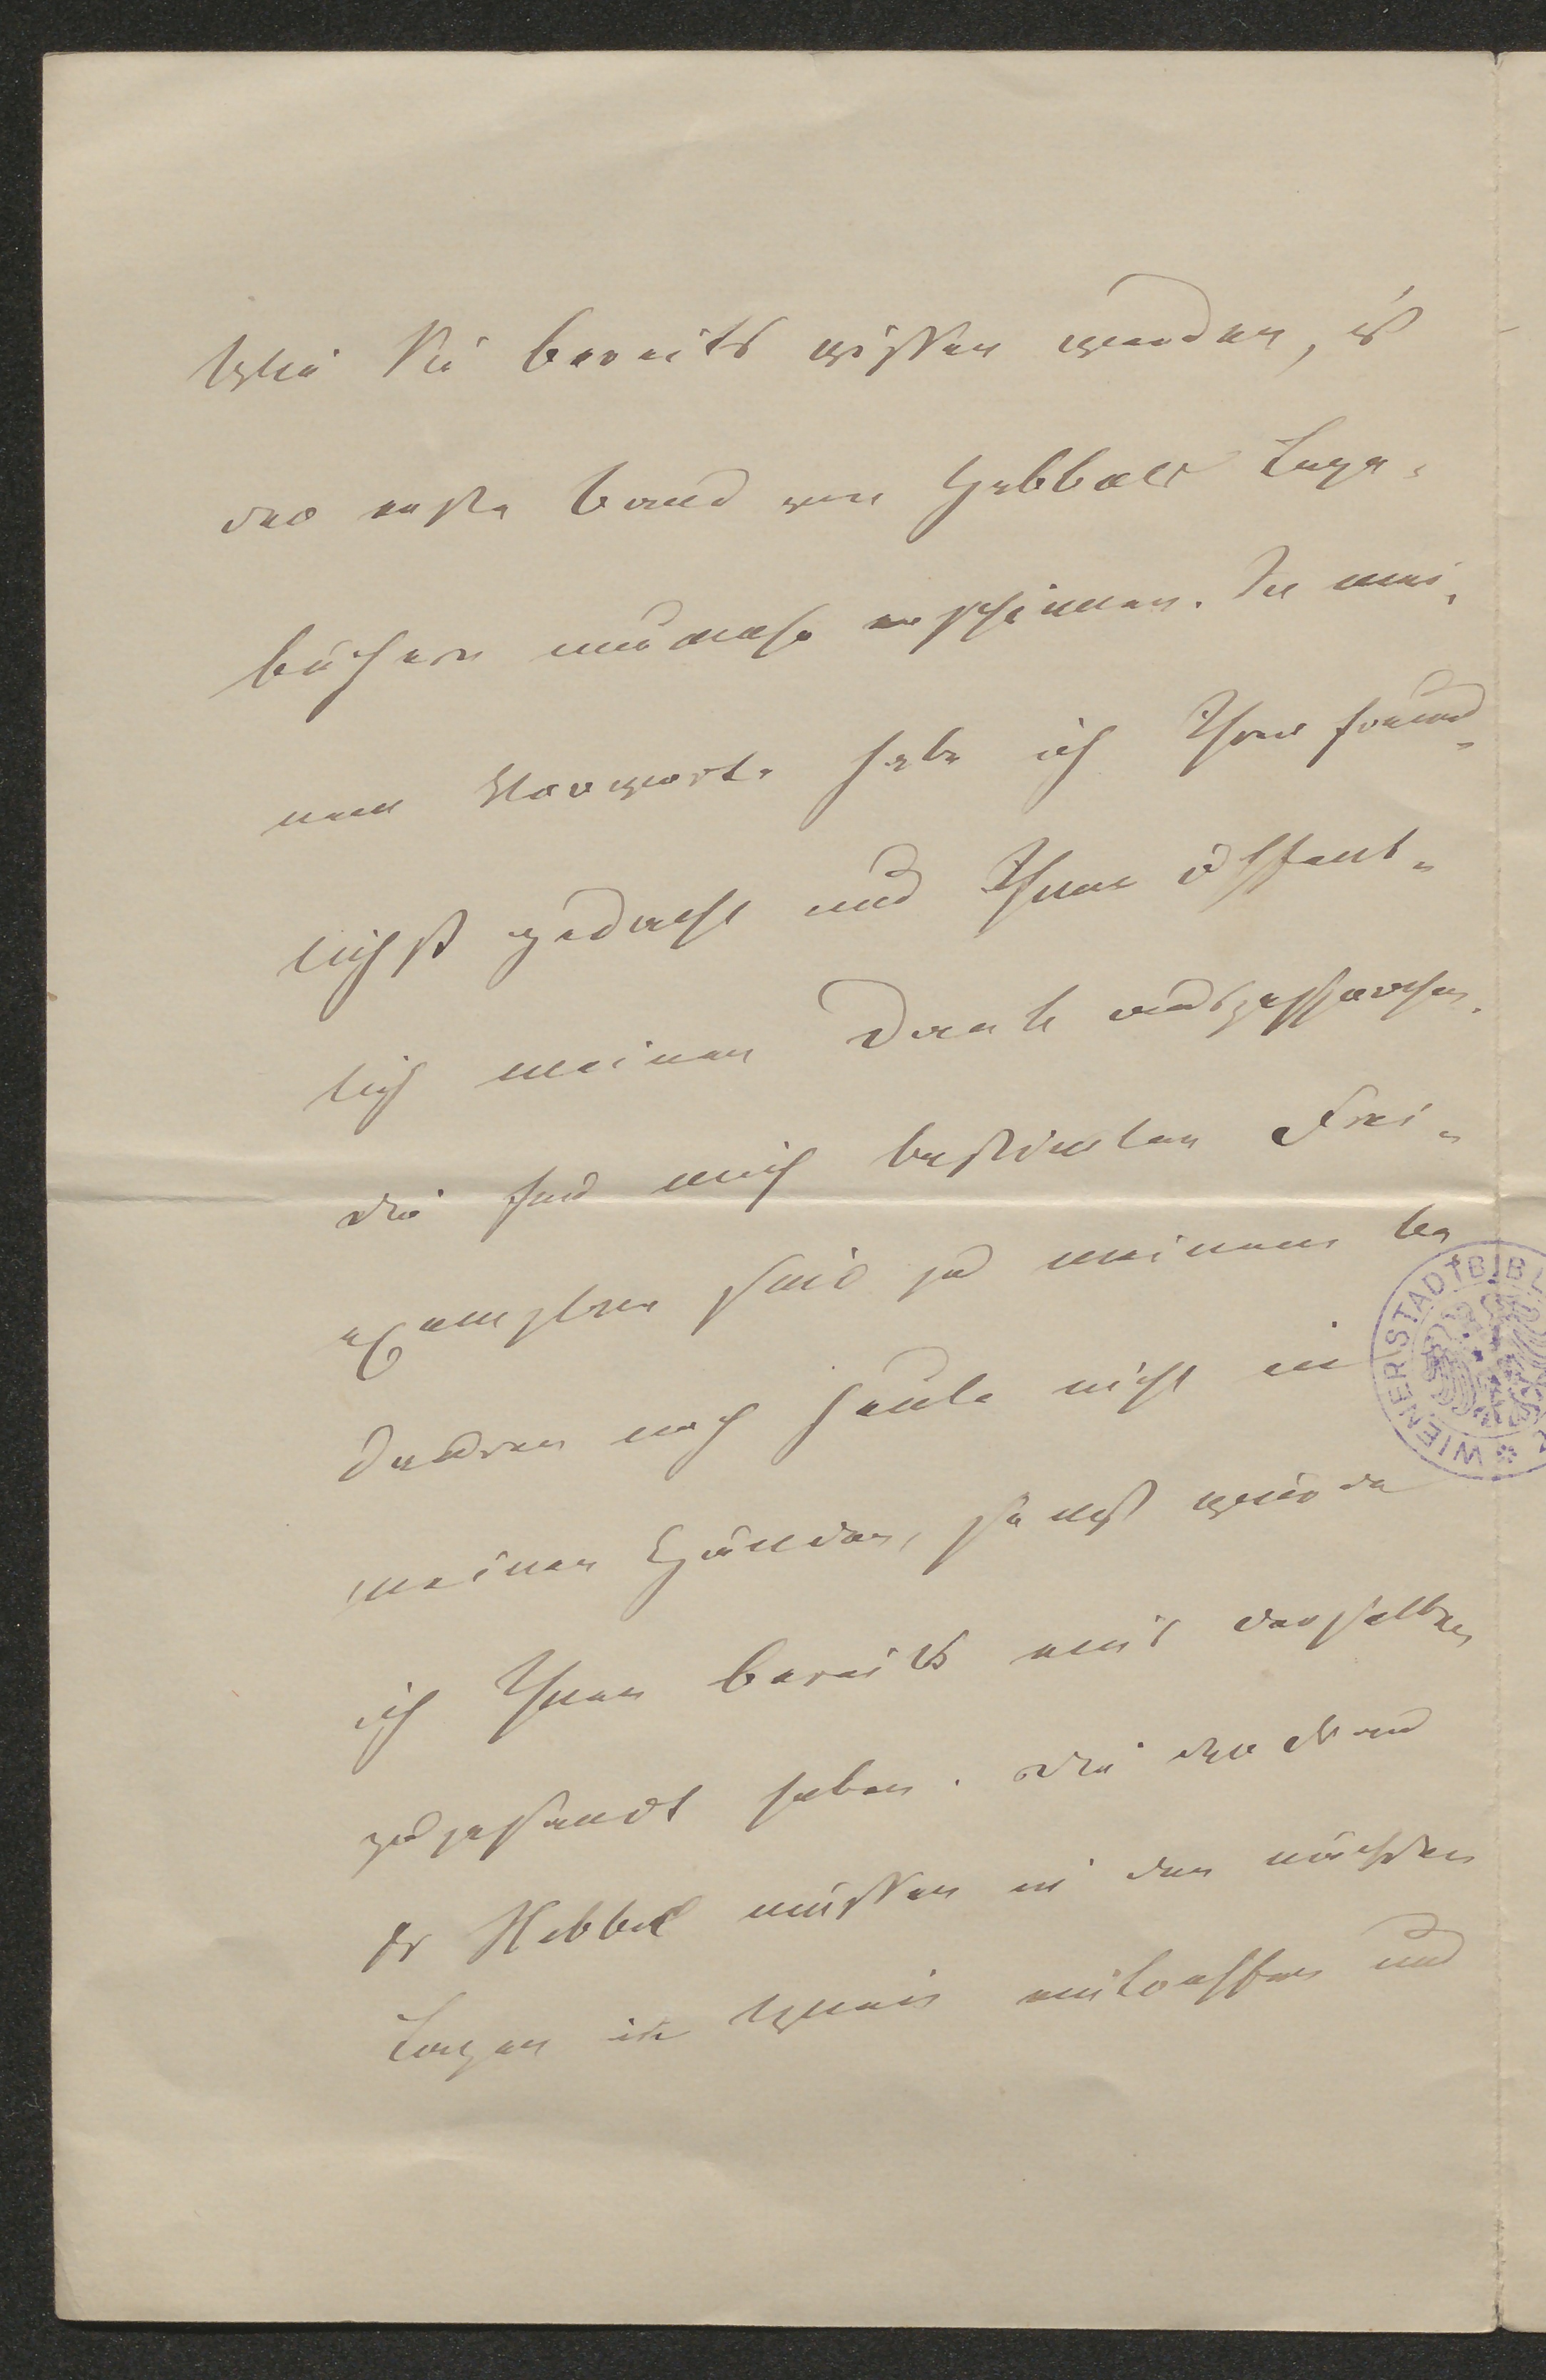 Wie Sie bereits wissen werden, ist
der erste Band von Hebbels Tage-
büchern nunmehr erschienen. In mei-
nem Vorworte habe ich Ihrer freund-
lichst gedacht und Ihnen öffent-
lich meinen Dank ausgesprochen.
Die für mich bestimmten Frei-
exemplare sind zu meinem Be
dauern noch heute nicht in
meinen Händen, sonst würde
ich Ihnen bereits eins derselben
zugesandt haben. Die der Frau
Dr Hebbel müssen in den nächsten
Tagen in Wien eintreffen und
WIENER STADTBIBL